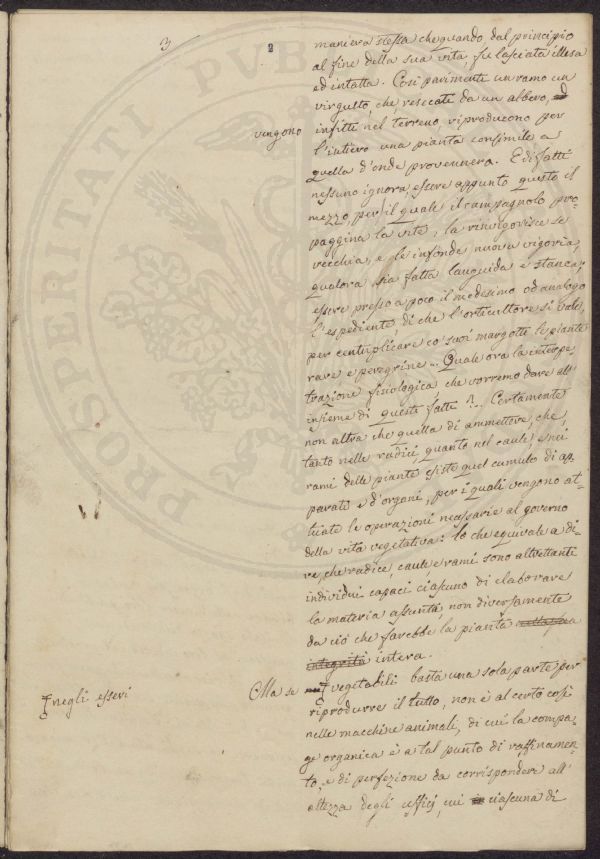 3
2
maniera stessa che quando dal principio
al fine della sua vita, fu lasciata illesa
ed intatta. Così parimente un ramo un
virgulto, che, resecati da un albero,
vengono infitti nel terreno riproducono per
l'intiero una pianta consimile a
quella d'onde provennero. E di fatti
nessuno ignora, essere appunto questo il
mezzo, per il quale il campagnolo pro-
paggina la vite, la rinvigorisce se
vecchia, e le infonde nuova vigoria,
qualora sia fatta languida e stanca;
essere presso a poco il medesimo od analogo
l'espediente, di che l'orticultore si vale,
per centuplicare co' suoi margotti le piante
rare e peregrine... Quale ora la interpe-
trazione fisiologica, che vorremo dare all'
insieme di questi fatti?... Certamente
non altra che quella di ammettere, che,
tanto nelle radici, quanto nel caule, e nei
rami delle piante esiste quel cumulo di ap-
parati e d'organi, per i quali vengono at-
tuate le operazioni necessarie al governo
della vita vegetativa: lo che equivale a di-
re, che radice, caule e rami sono altrettanti
individui capaci ciascuno di elaborare
la materia assunta, non diversamente
da ciò che farebbe la pianta
integrità intera.
Ma se vegetabili basta una sola parte per
negli esseri
riprodurre il tutto, non è al certo così
nelle macchine animali, di cui la compa-
ge organica è a tal punto di raffinamen-
to, e di perfezione da corrispondere all'
altezza degli ufficj, cui ciascuna di
PROSPERITATI PVB